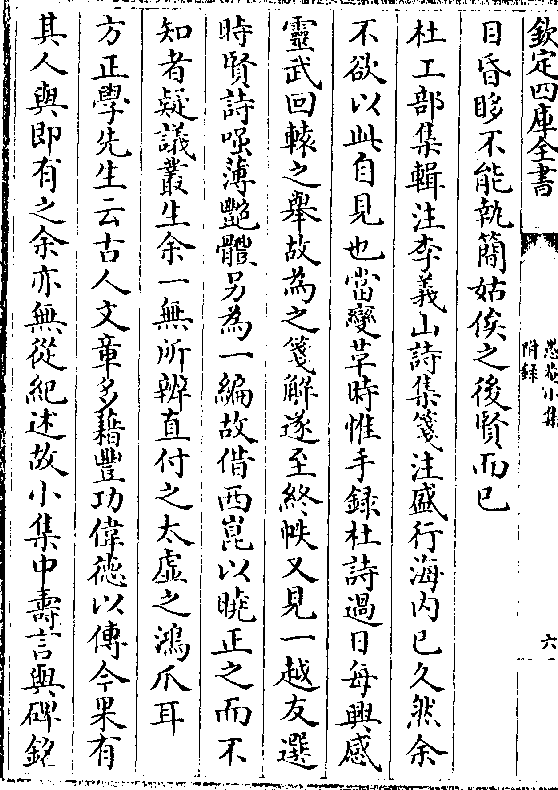 欽定四庫全書
愚菴小集
附錄
六
目昏眵不能執簡姑俟之後賢而已
杜工部集輯注李義山詩集箋注盛行海内已久然余
不欲以此自見也當變革時惟手録杜詩過日每興感
靈武回轅之舉故為之箋解遂至終帙又見一越友選
時賢詩嗤薄艷體另為一編故借西崑以曉正之而不
知者疑議叢生余一無所辨直付之太虛之鴻爪耳
方正學先生云古人文章多藉豐功偉德以傳今果有
其人與即有之余亦無從紀述故小集中壽言與碑銘